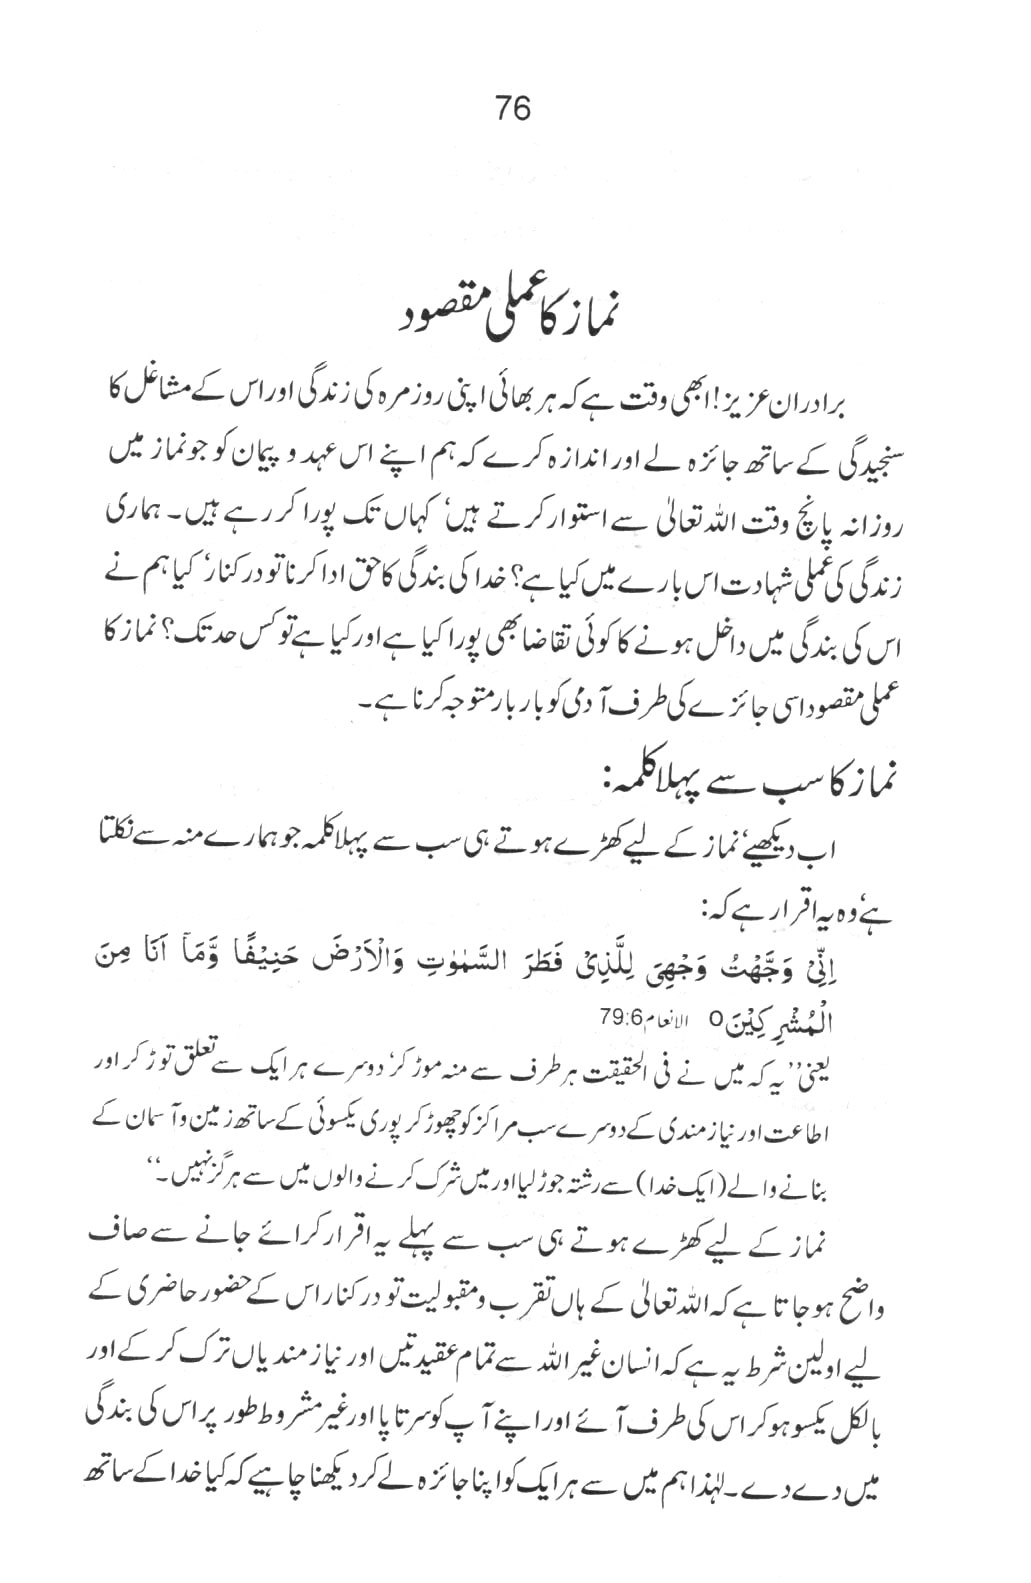 76
نماز کا عملی مقصود
برادران عزیز! ابھی وقت ہے کہ ہر بھائی اپنی روز مرہ کی زندگی اور اس کے مشاغل کا
سنجیدگی کے ساتھ جائزہ لے اور اندازہ کرے کہ ہم اپنے اس عہد و پیمان کو جو نماز میں
روزانہ پانچ وقت اللہ تعالیٰ سے استوار کرتے ہیں‘ کہاں تک پورا کر رہے ہیں۔ ہماری
زندگی کی عملی شہادت اس بارے میں کیا ہے؟ خدا کی بندگی کا حق ادا کرنا تو درکنار‘ کیا ہم نے
اس کی بندگی میں داخل ہونے کا کوئی تقاضا بھی پورا کیا ہے اور کیا ہے تو کس حد تک؟ نماز کا
عملی مقصود اسی جائزے کی طرف آدمی کو بار بار متوجہ کرنا ہے۔
نماز کا سب سے پہلا کلمہ:
اب دیکھیے‘ نماز کے لیے کھڑے ہوتے ہی سب سے پہلا کلمہ جو ہمارے منہ سے نکلتا
ہے‘ وہ یہ اقرار ہے کہ:
اِنِّیْ وَجَّهْتُ وَجْهِیَ لِلَّذِیْ فَطَرَ السَّمٰوٰتِ وَالْاَرْضَ حَنِیْفًا وَّمَآ اَنَا مِنَ
الْمُشْرِکِیْنَo الانعام 79:6
یعنی ’’یہ کہ میں نے فی الحقیقت ہر طرف سے منہ موڑ کر‘ دوسرے ہر ایک سے تعلق توڑ کر اور
اطاعت اور نیاز مندی کے دوسرے سب مراکز کو چھوڑ کر پوری یکسوئی کے ساتھ زمین و آسمان کے
بنانے والے (ایک خدا) سے رشتہ جوڑ لیا اور میں شرک کرنے والوں میں سے ہرگز نہیں۔‘‘
نماز کے لیے کھڑے ہوتے ہی سب سے پہلے یہ اقرار کرائے جانے سے صاف
واضح ہو جاتا ہے کہ اللہ تعالیٰ کے ہاں تقرب و مقبولیت تو درکنار اس کے حضور حاضری کے
لیے اولین شرط یہ ہے کہ انسان غیر اللہ سے تمام عقیدتیں اور نیاز مندیاں ترک کر کے اور
بالکل یکسو ہو کر اس کی طرف آئے اور اپنے آپ کو سرتاپا اور غیر مشروط طور پر اس کی بندگی
میں دے دے۔ لہٰذا ہم میں سے ہر ایک کو اپنا جائزہ لے کر دیکھنا چاہیے کہ کیا خدا کے ساتھ